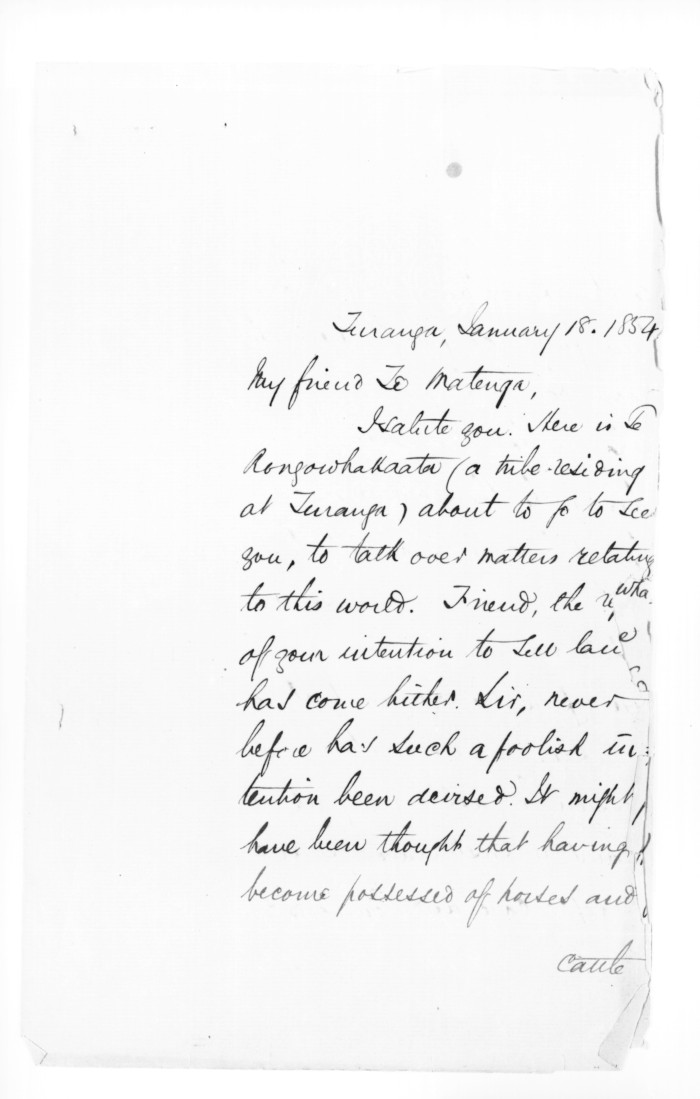 Turanga, January 18. 1854
My friend Te Matenga,
I salute you. Here is Te
Rongowhakaata (a tribe residing
at Turanga) about to go to see
you, to talk over matters relating
to this world. Friend, the
of your intention to sell land
has come hither. Sir, never
before has such a foolish in-
tention been devised. It might
have been thought that having
become possessed of horses and
cattle